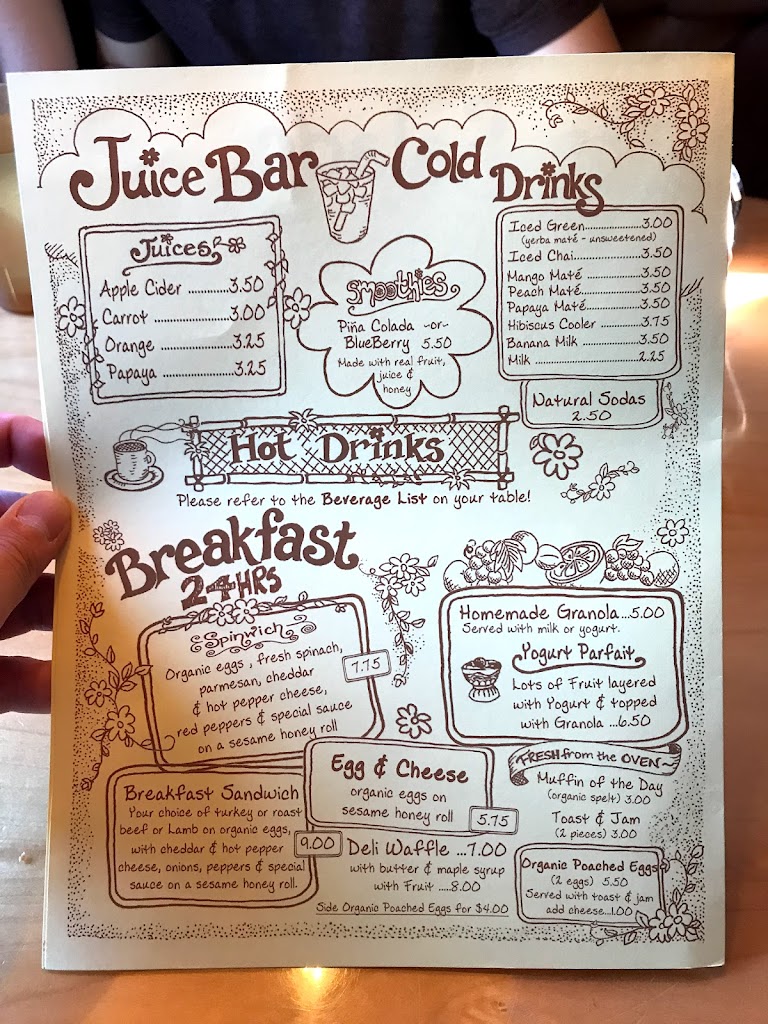 Juice Bar
Cold Drinks
Juices
Apple Cider ..............3.50
Carrot ..................3.00
Orange ..................3.25
Papaya ..................3.25
Smoothies
Piña Colada -or-
BlueBerry 5.50
Made with real fruit,
juice &
honey
Iced Green....................3.00
(yerba maté - unsweetened)
Iced Chai.....................3.50
Mango Maté ................3.50
Peach Maté.................3.50
Papaya Maté...............3.50
Hibiscus Cooler ............3.75
Banana Milk ................3.50
Milk ..........................2.25
Natural Sodas
2.50
Hot Drinks
Please refer to the Beverage List on your table!
Breakfast
24 HRS
Spinwich
Organic eggs, fresh spinach,
parmesan, cheddar
& hot pepper cheese,
red peppers & special sauce
on a sesame honey roll
7.75
Homemade Granola...5.00
Served with milk or yogurt.
Yogurt Parfait
Lots of Fruit layered
with Yogurt & topped
with Granola ...6.50
Breakfast Sandwich
Your choice of turkey or roast
beef or Lamb on organic eggs,
with cheddar & hot pepper
cheese, onions, peppers & special
sauce on a sesame honey roll.
9.00
Egg & Cheese
organic eggs on
sesame honey roll
5.75
Deli Waffle ...7.00
with butter & maple syrup
with Fruit ....8.00
Side Organic Poached Eggs for $4.00
FRESH from the OVEN~
Muffin of the Day
(organic spelt) 3.00
Toast & Jam
(2 pieces) 3.00
Organic Poached Eggs
(2 eggs) 5.50
Served with toast & jam
add cheese...1.00